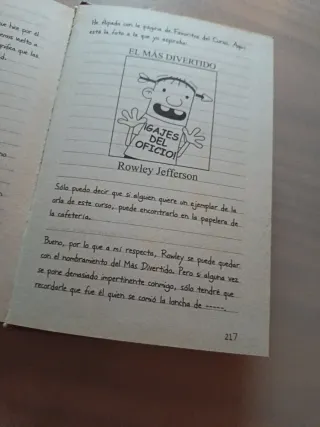 He alipado con la página de Favoritos del Curso. Aquí
está la foto a la que yo aspiraba:
EL MÁS DIVERTIDO
¡GAJES
DEL
OFICIO!
Rowley Jefferson
Sólo puedo decir que si alguien quiere un ejemplar de la
orla de este curso, puede encontrarlo en la papelera de
la cafetería.
Bueno, por lo que a mí respecta, Rowley se puede quedar
con el nombramiento del Más Divertido. Pero si alguna vez
se pone demasiado impertinente conmigo, sólo tendré que
recordarle que fue él quien se comió la loncha de
217